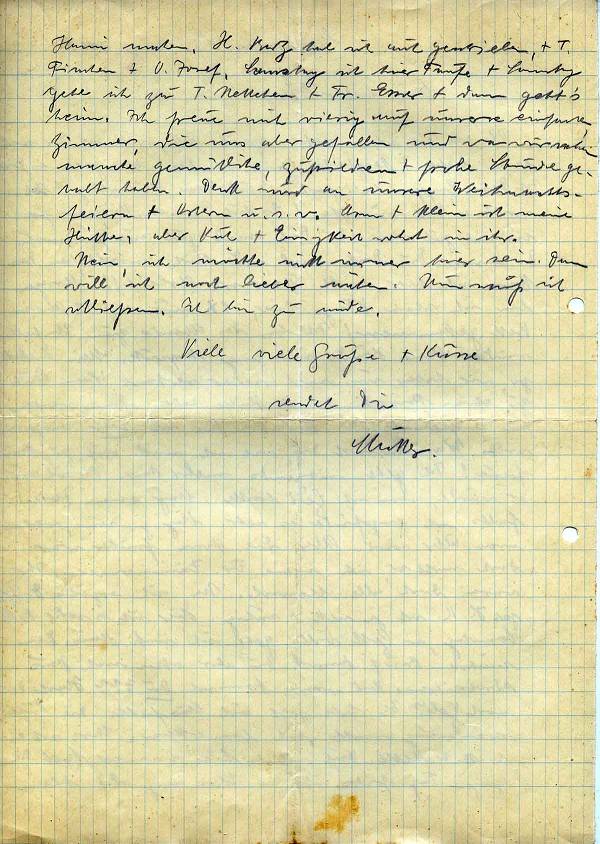 H. Kurz hat ich mit , + T.
Finchen + O. Josef. Samstag ist hier Taufe + Sonntag
gehe ich zu T. Nettchen + Fr. Esser + dann geht's
heim. Ich freue mich riesig auf unsere einfachen
Zimmer, die uns aber gefallen und wo wir schon
manche gemütliche, zufriedene + frohe Stunde ge-
habt haben. Denk mal an unsere Weihnachts-
feiern + Ostern u.s.w. Arm + klein ist meine
Hütte, aber Ruh + Einigkeit wohnt in ihr.
Nein, ich möchte nicht immer hier sein. Dann
will ich noch lieber nähen. Nun muß ich
schließen. Ich bin zu müde.
Viele viele Grüße + Küsse
sendet Dir
Mutter.